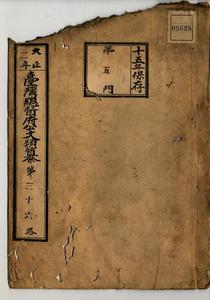 大正二年
臺灣總督府公文類纂 第三十六卷
十五年保存
第五門
05628